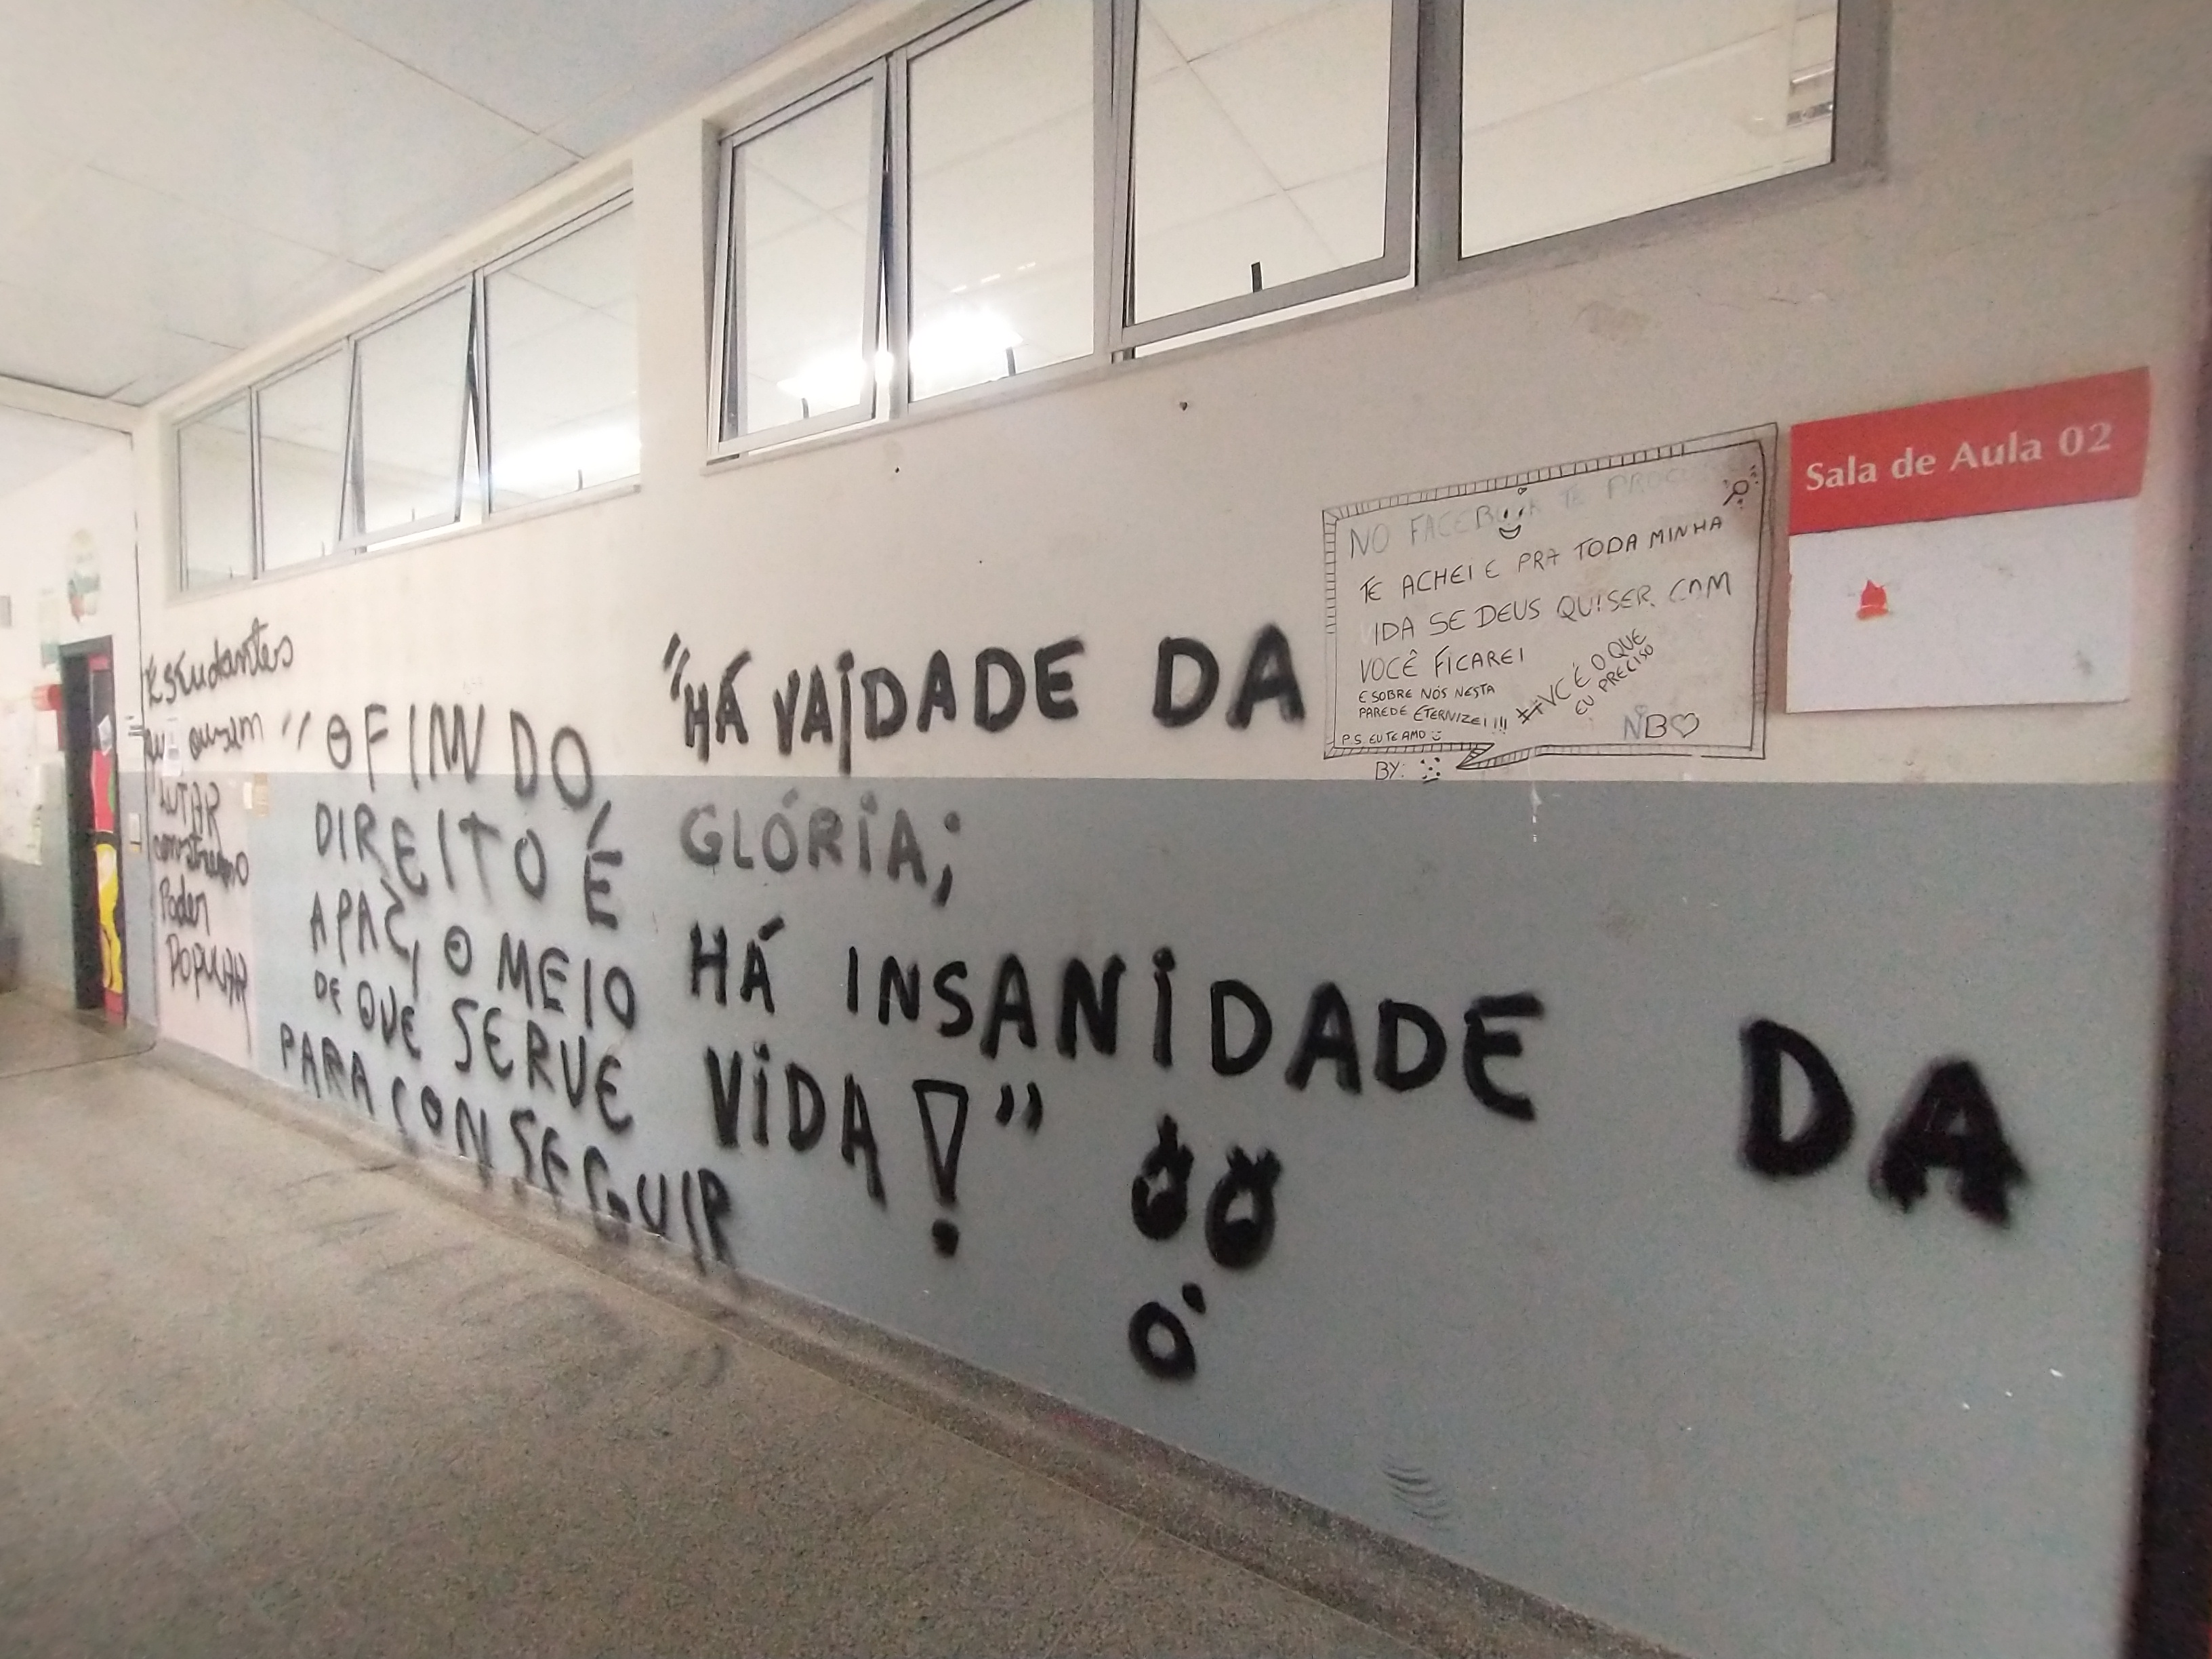 Estudantes
ousem
LUTAR
construano
Poder
POPULAR
"O FINN DO
DIREITO É
A PAČ, O MEIO
DE QUE SERVE
PARA CONSEGUIR
"HÁ VAIDADE DA
GLÓRIA;
HÁ INSANIDADE DA
VIDA!"
NO FACEBOOK TE PROCU
TE ACHEI E PRA TODA MINHA
VIDA SE DEUS QUISER COM
VOCÊ FICAREI
E SOBRE NÓS NESTA
PAREDE ETERNIZEI!!!
#VC É O QUE
EU PRECISO
P.S. EU TE AMO
NB
BY:
Sala de Aula 02